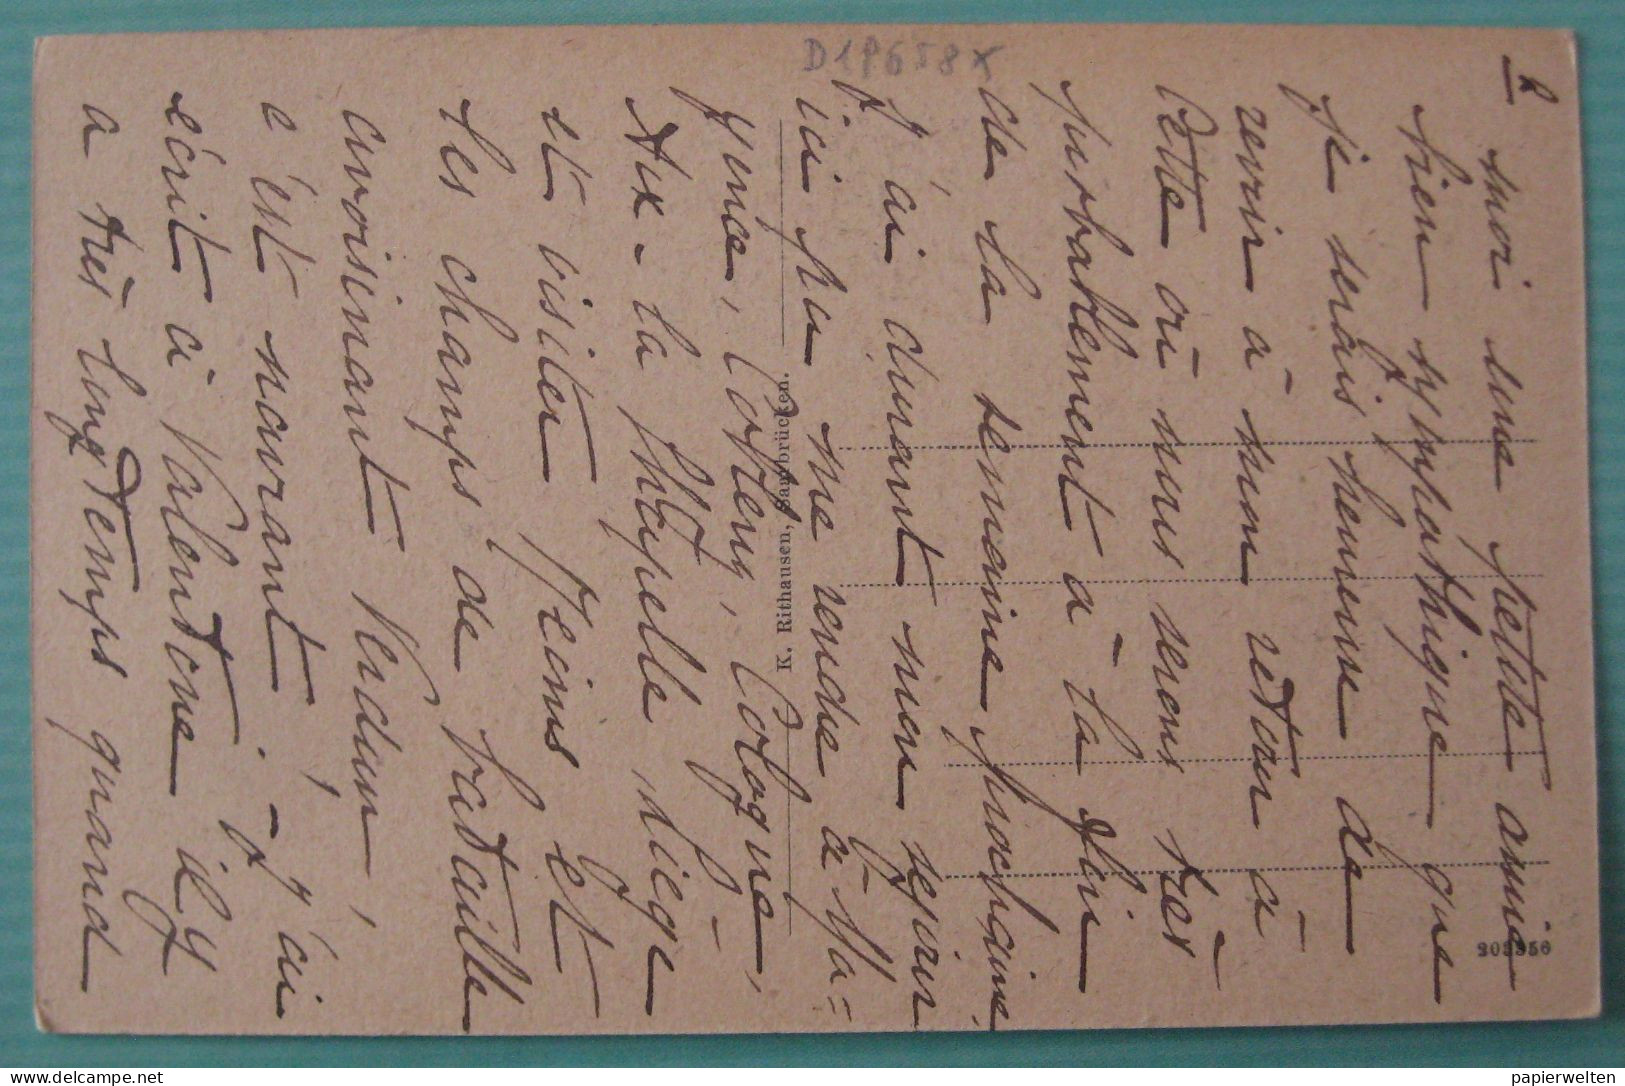 2
moi une petite amie
bien sympathique que
je serais heureuse de
revoir à mon retour à
Cette où nous serons très
probablement à la fin
de la semaine prochaine.
J'ai durant mon séjour
ici pu me rendre à Ma=
yence, Coblenz, Cologne,
Aix-la Chapelle, Liège
et visiter Reims et
les champs de bataille
avoisinant Verdun,
c'est navrant. - J'ai
écrit à Valentine il y
a très longtemps quand
D19658x
K. Rithausen, Saarbrücken.
papierwelten